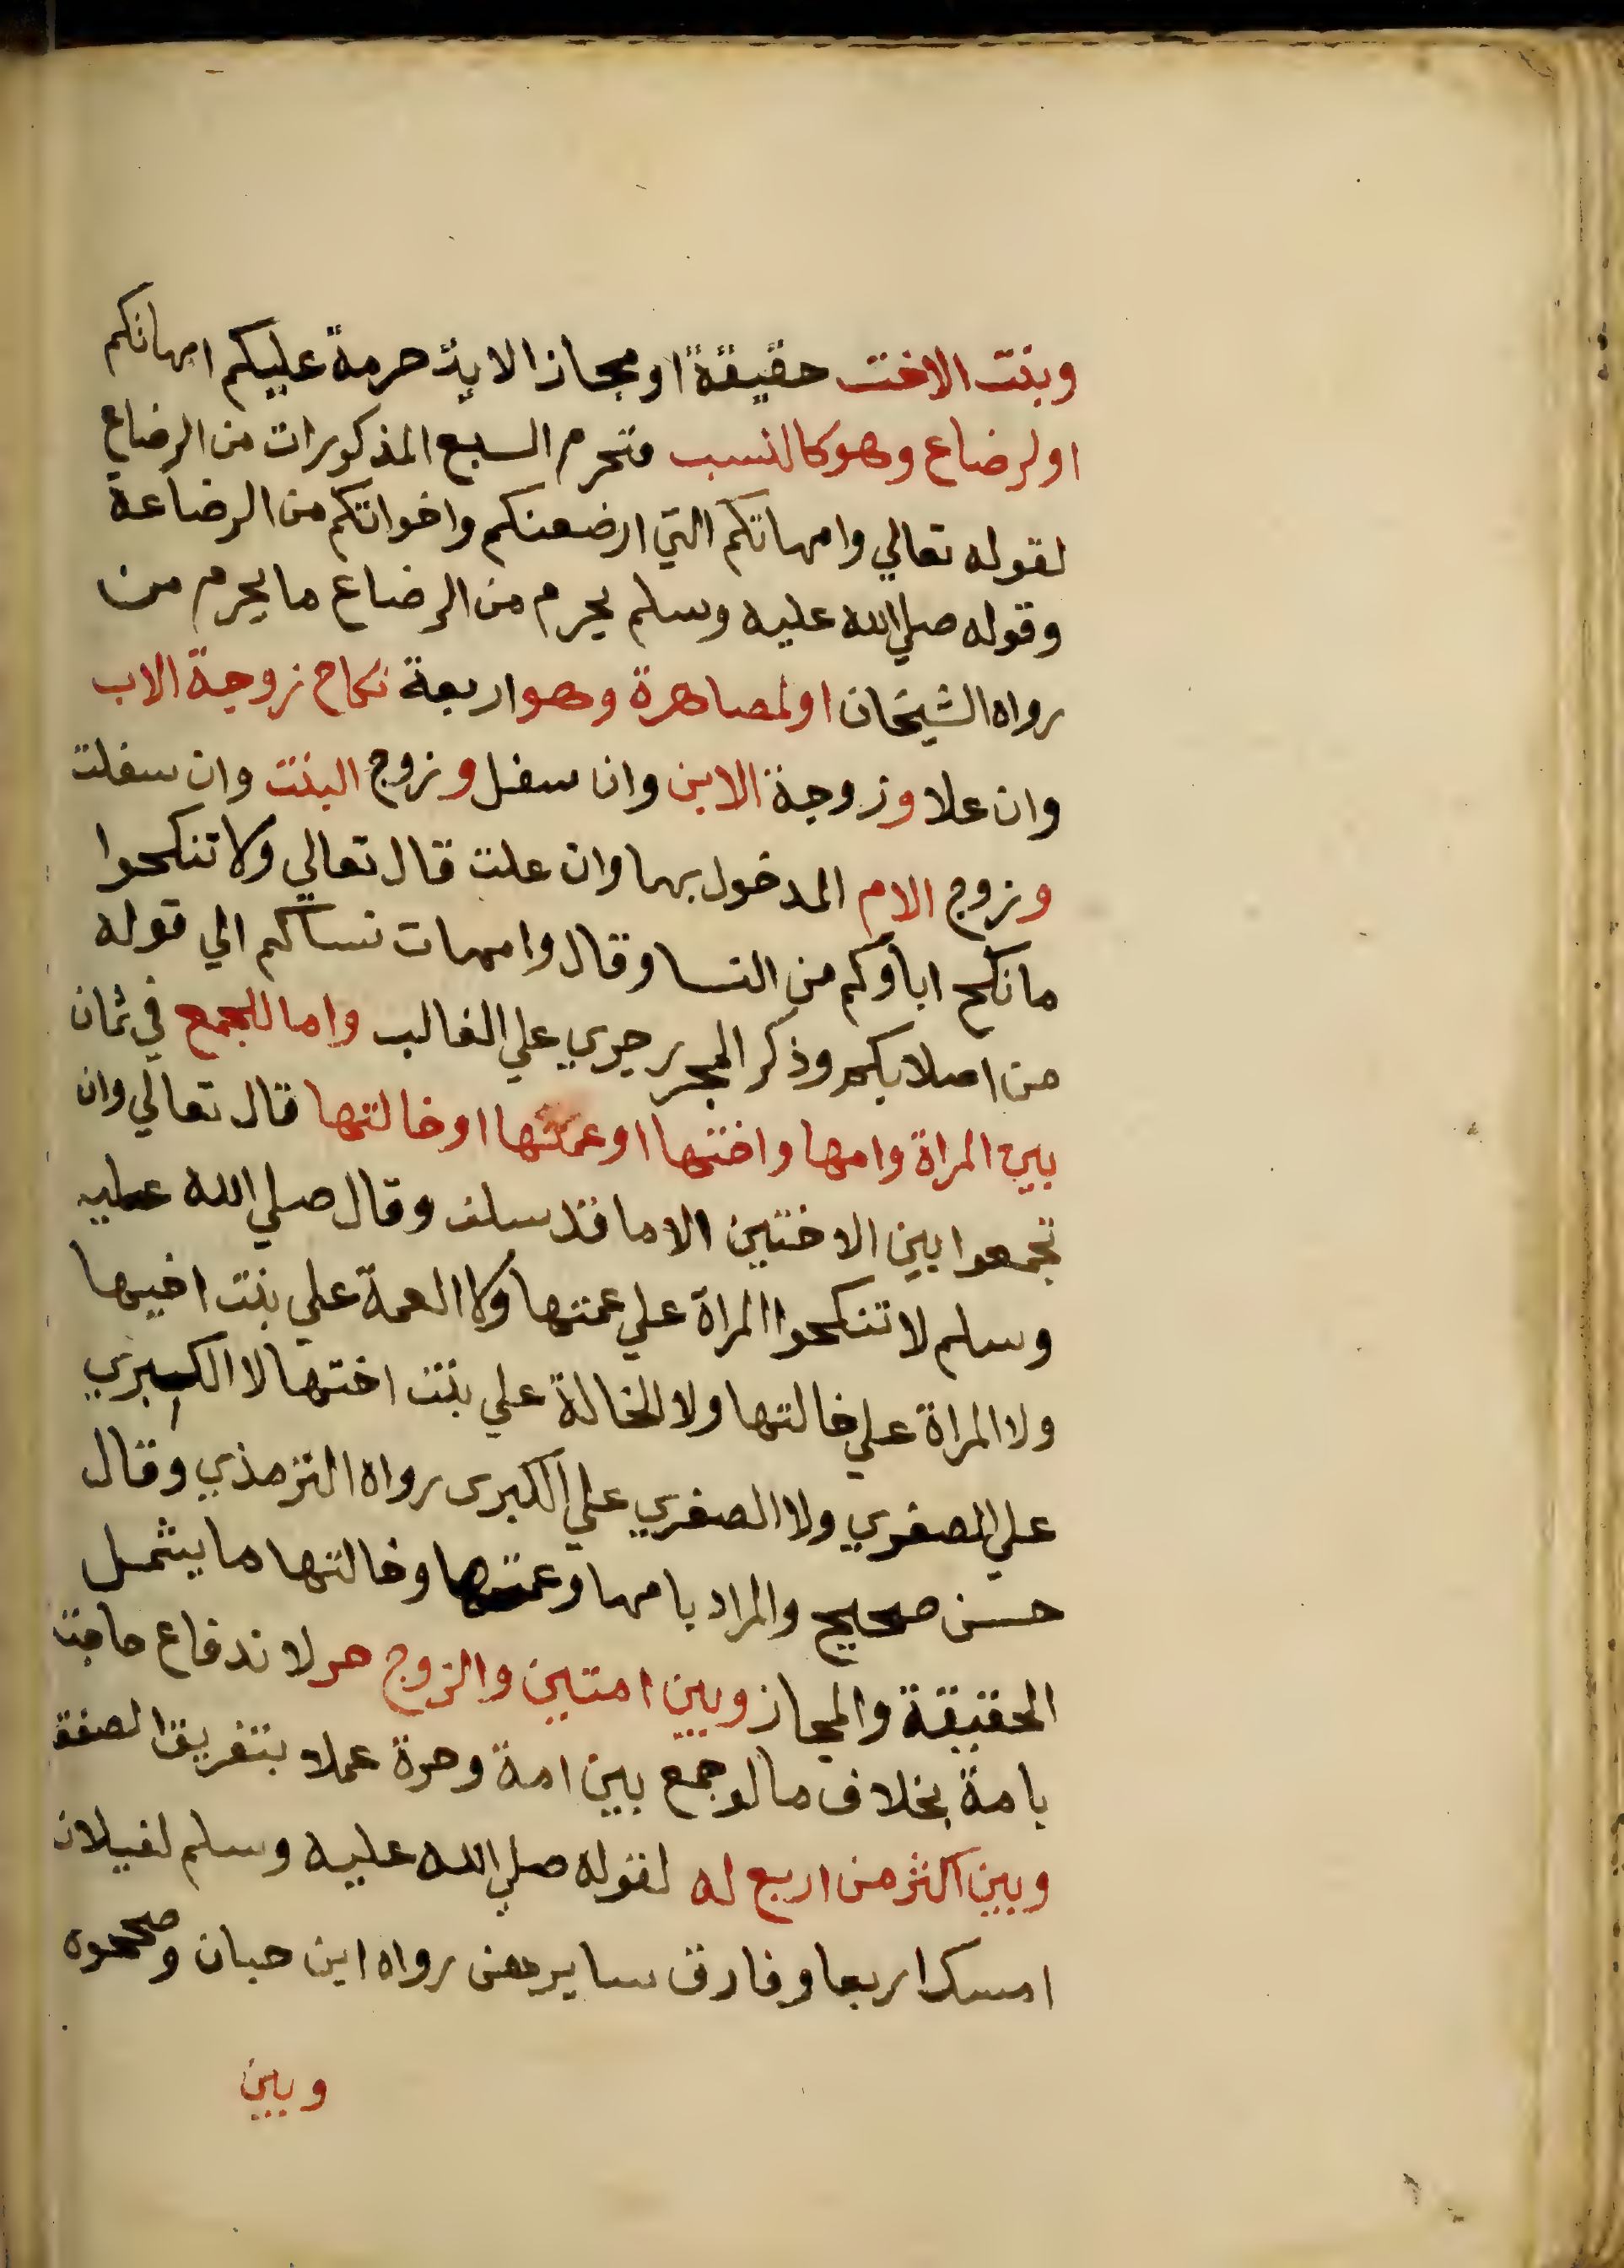 وبنت الاخت حقيقة او مجاز الاية حرمة عليكم امهاتكم
اولرضاع وهوكالنسب فتحرم السبع المذكورات من الرضاع
لقوله تعالي وامهاتكم التي ارضعنكم واخواتكم من الرضاعة
وقوله صلي الله عليه وسلم يحرم من الرضاع ما يحرم من
رواه الشيخان اولمصاهرة وهو اربعة نكاح زوجة الاب
وان علا وزوجة الابن وان سفل وزوج البنت وان سفلت
وزوج الام المدخول بها وان علت قال تعالي ولا تنكحوا
ما نكح اباوكم من النسا وقال وامهات نساكم الي قوله
من اصلابكم وذكر الحجر جري علي الغالب واما للجمع في ثمان
بين المراة وامها واختها او عمتها او خالتها قال تعالي وان
تجمعوا بين الاختين الا ما قد سلف وقال صلي الله عليه
وسلم لا تنكحوا المراة علي عمتها ولا العمة علي بنت اخيها
ولا المراة علي خالتها ولا الخالة علي بنت اختها لا الكبري
علي الصغري ولا الصغري علي الكبرى رواه الترمذي وقال
حسن صحيح والمراد بامها وعمتها وخالتها ما يشمل
الحقيقة والمجاز وبين امتين والزوج حر لاندفاع حاجته
بامة بخلاف ما لو جمع بين امة وحرة عملا بتفريق الصفقة
وبين اكثر من اربع له لقوله صلي الله عليه وسلم لغيلان
امسك اربعا وفارق سايرهن رواه ابن حبان وصححوه
وبين